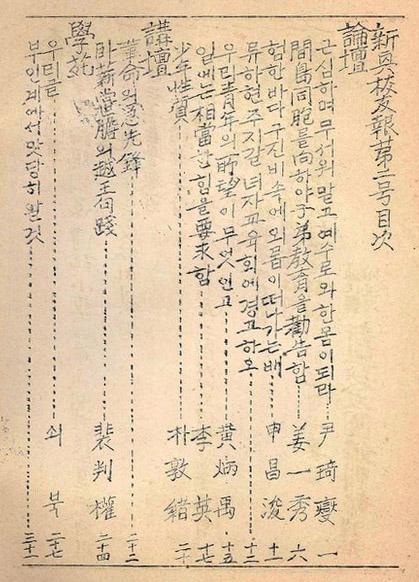 新興校友報第二号目次
論壇
근심하며무서워말고예수로와한몸이되라 尹琦燮 一
間島同胞를向하야子弟敎育을勸告함 姜一秀 六
험한바다구진비속에외롭이떠나가는배 申昌浚 十一
류하현주지갈녀자교육회에경고하오 十三
우리靑年의所望이무엇인고 黃炳禹 十五
일에는相當한힘을要求함 李英 十七
少年性質 朴敦緖 二十
講壇
革命의急先鋒 二十二
臥薪嘗膽의越王句踐 裴判權 二十四
學苑
우리글 쇠북 二十七
부인계에서맛당히할것 三十一